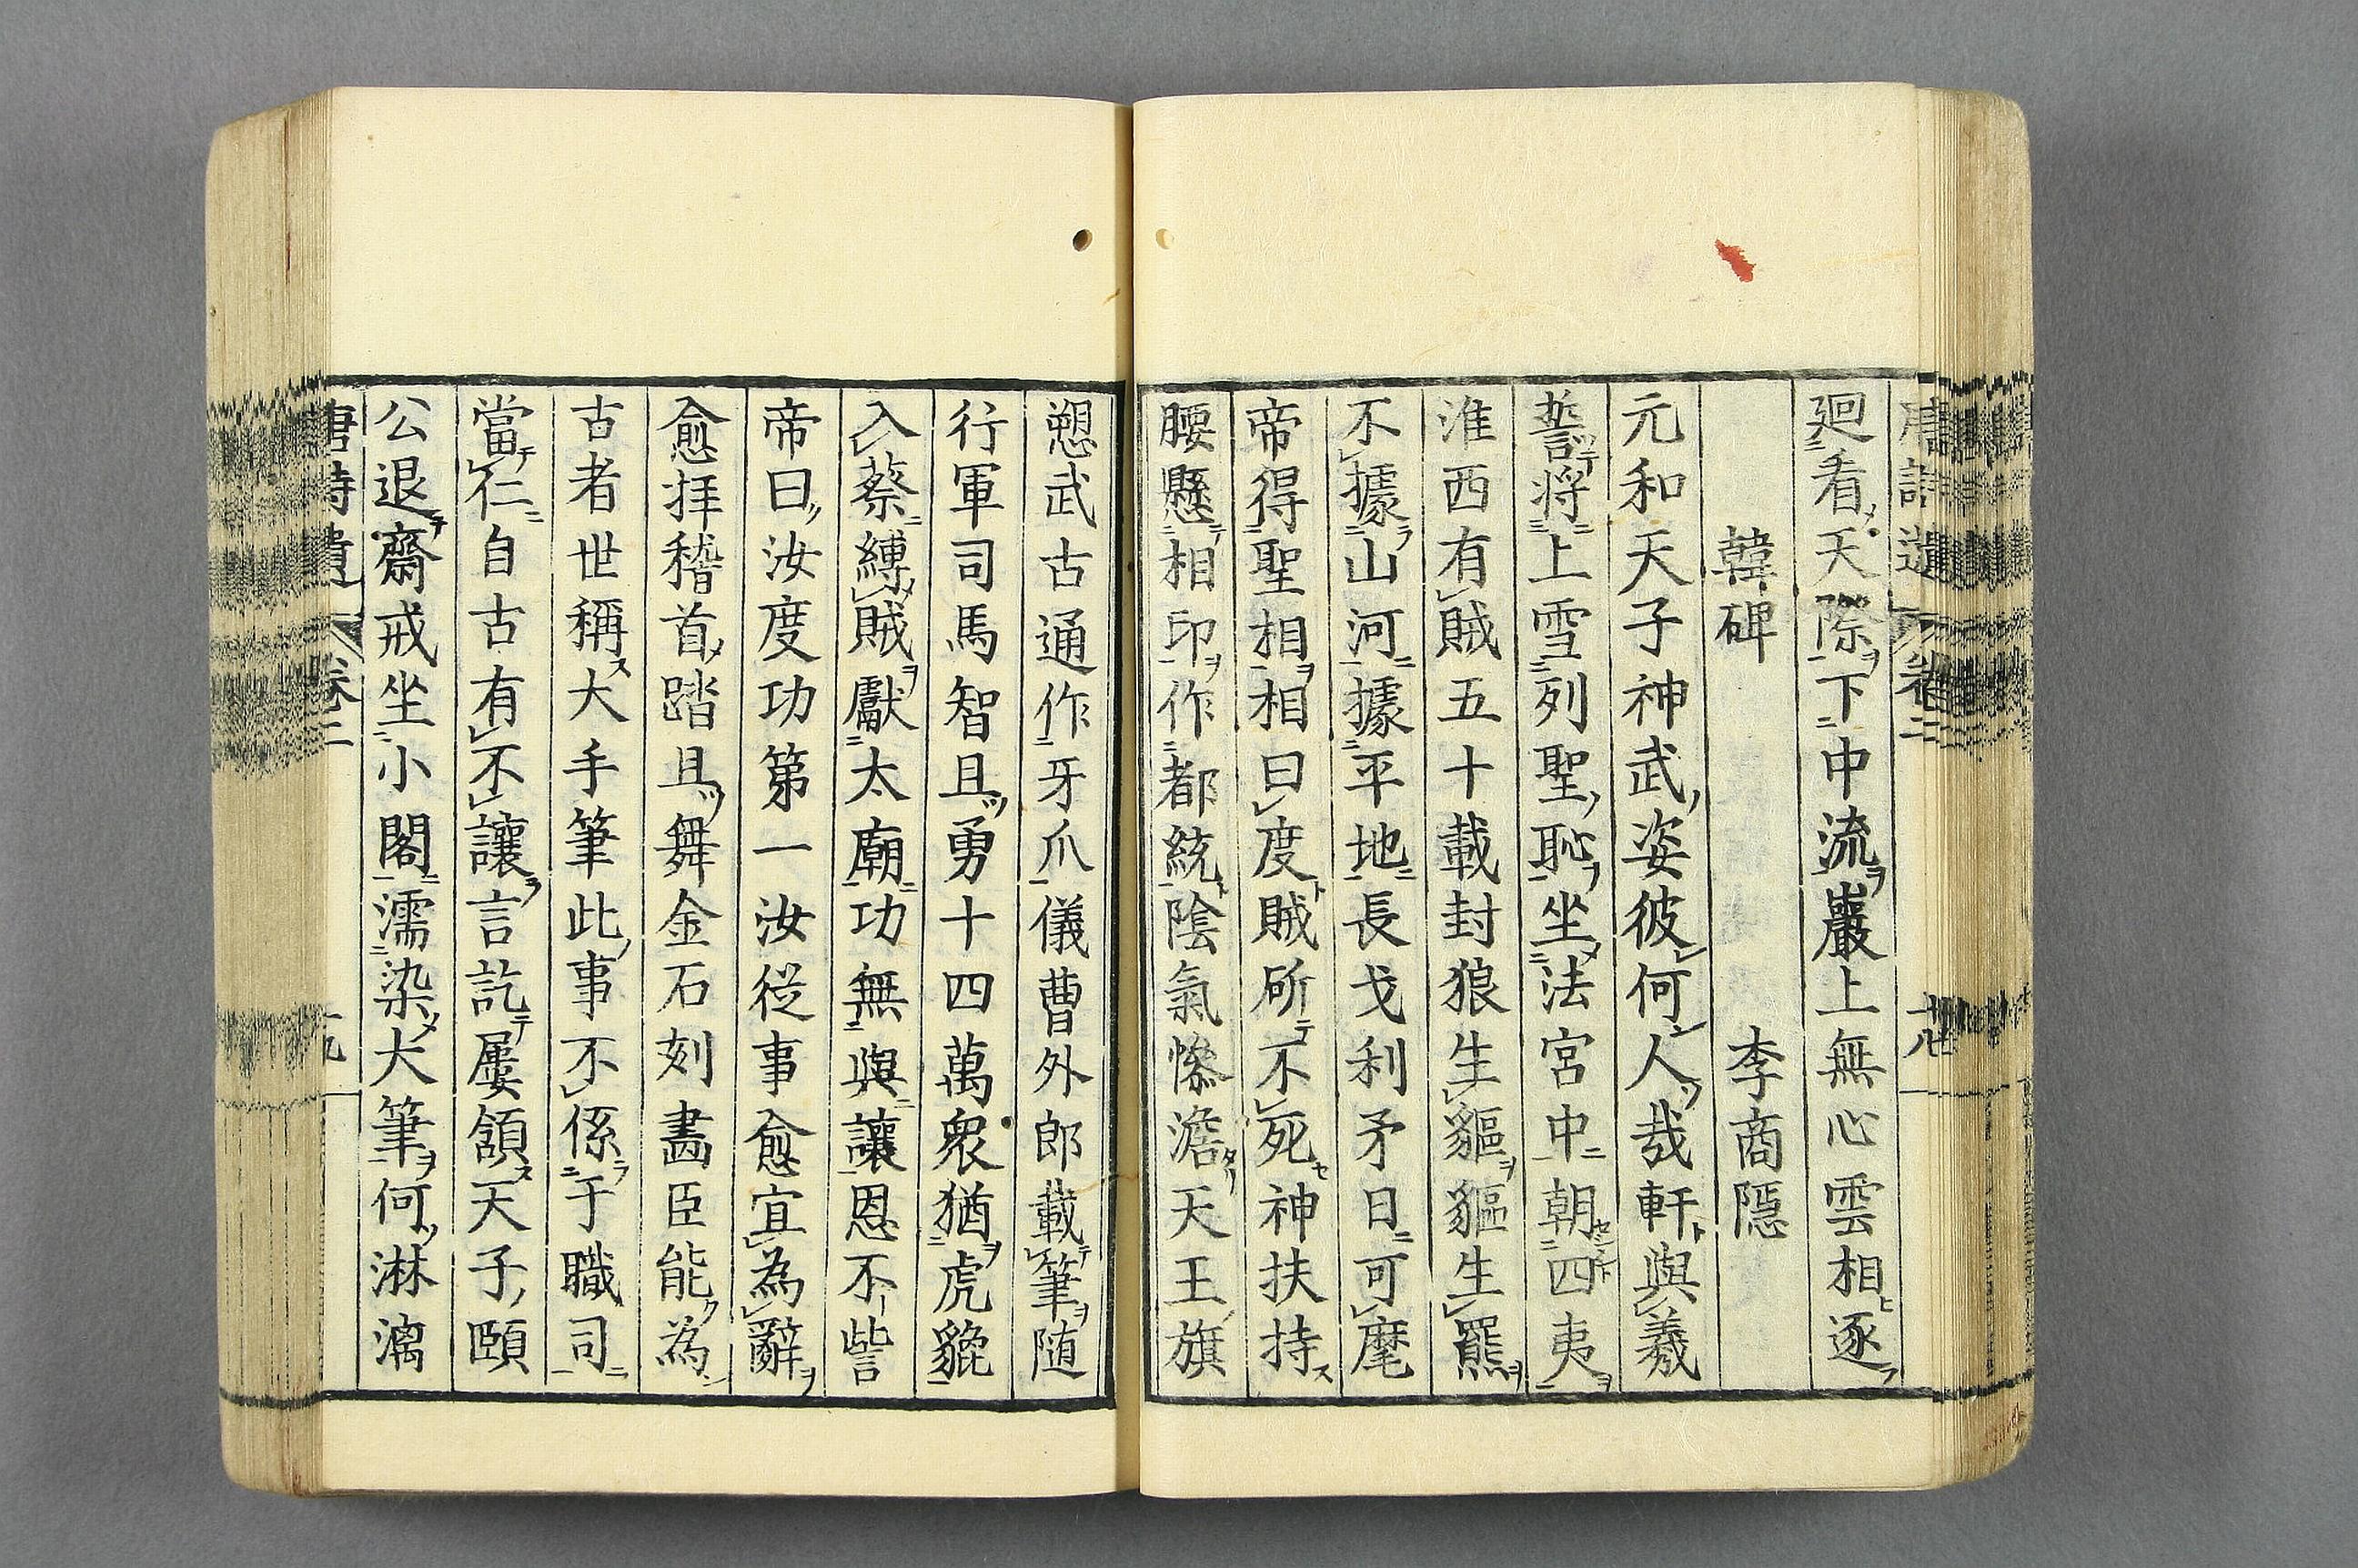 廻看天際下中流巖上無心雲相逐
韓碑　李商隱
元和天子神武姿彼何人哉軒與羲
誓将上雪列聖恥坐法宮中朝四夷
淮西有賊五十載封狼生貙貙生羆
不據山河據平地長戈利矛日可麾
帝得聖相相曰度賊斫不死神扶持
腰懸相印作都統陰氣慘澹天王旗
愬武古通作牙爪儀曹外郎載筆随
行軍司馬智且勇十四萬衆猶虎貔
入蔡縛賊獻太廟功無與讓恩不訾
帝曰汝度功第一汝從事愈宜為辭
愈拝稽首蹈且舞金石刻畫臣能為
古者世稱大手筆此事不係于職司
當仁自古有不讓言訖屢頷天子頤
公退齋戒坐小閣濡染大筆何淋漓